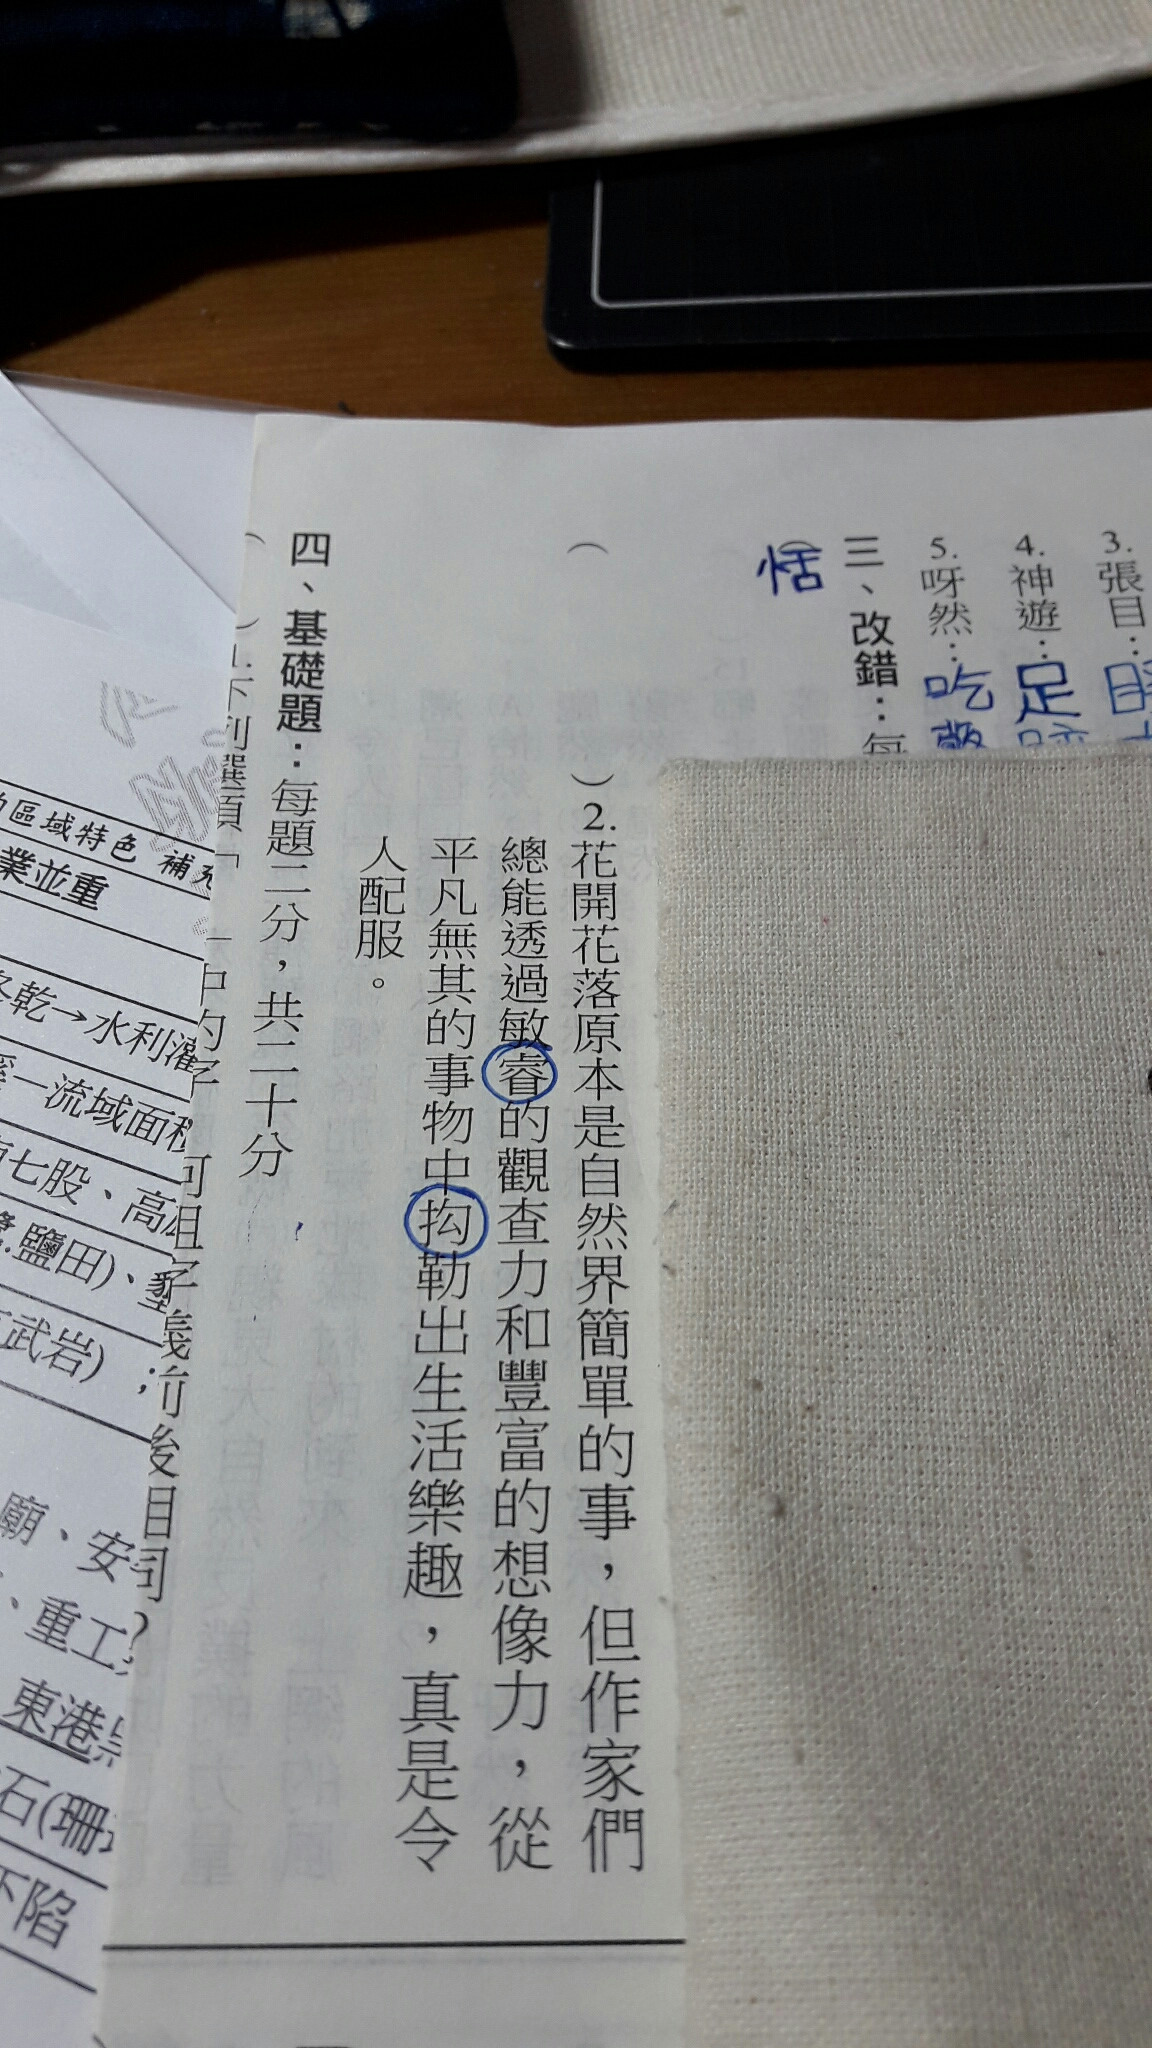 3.張目：
4.神遊：足
5.呀然：吃驚
三、改錯：每
恬
（　）2.花開花落原本是自然界簡單的事，但作家們
總能透過敏睿的觀查力和豐富的想像力，從
平凡無其的事物中抅勒出生活樂趣，真是令
人配服。
四、基礎題：每題二分，共二十分
（　）1.下列選項「
區域特色 補充
業並重
乾→水利灌
一流域面積
七股、高
鹽田)、
武岩)；
廟、安
、重工
東港
石(珊
下陷